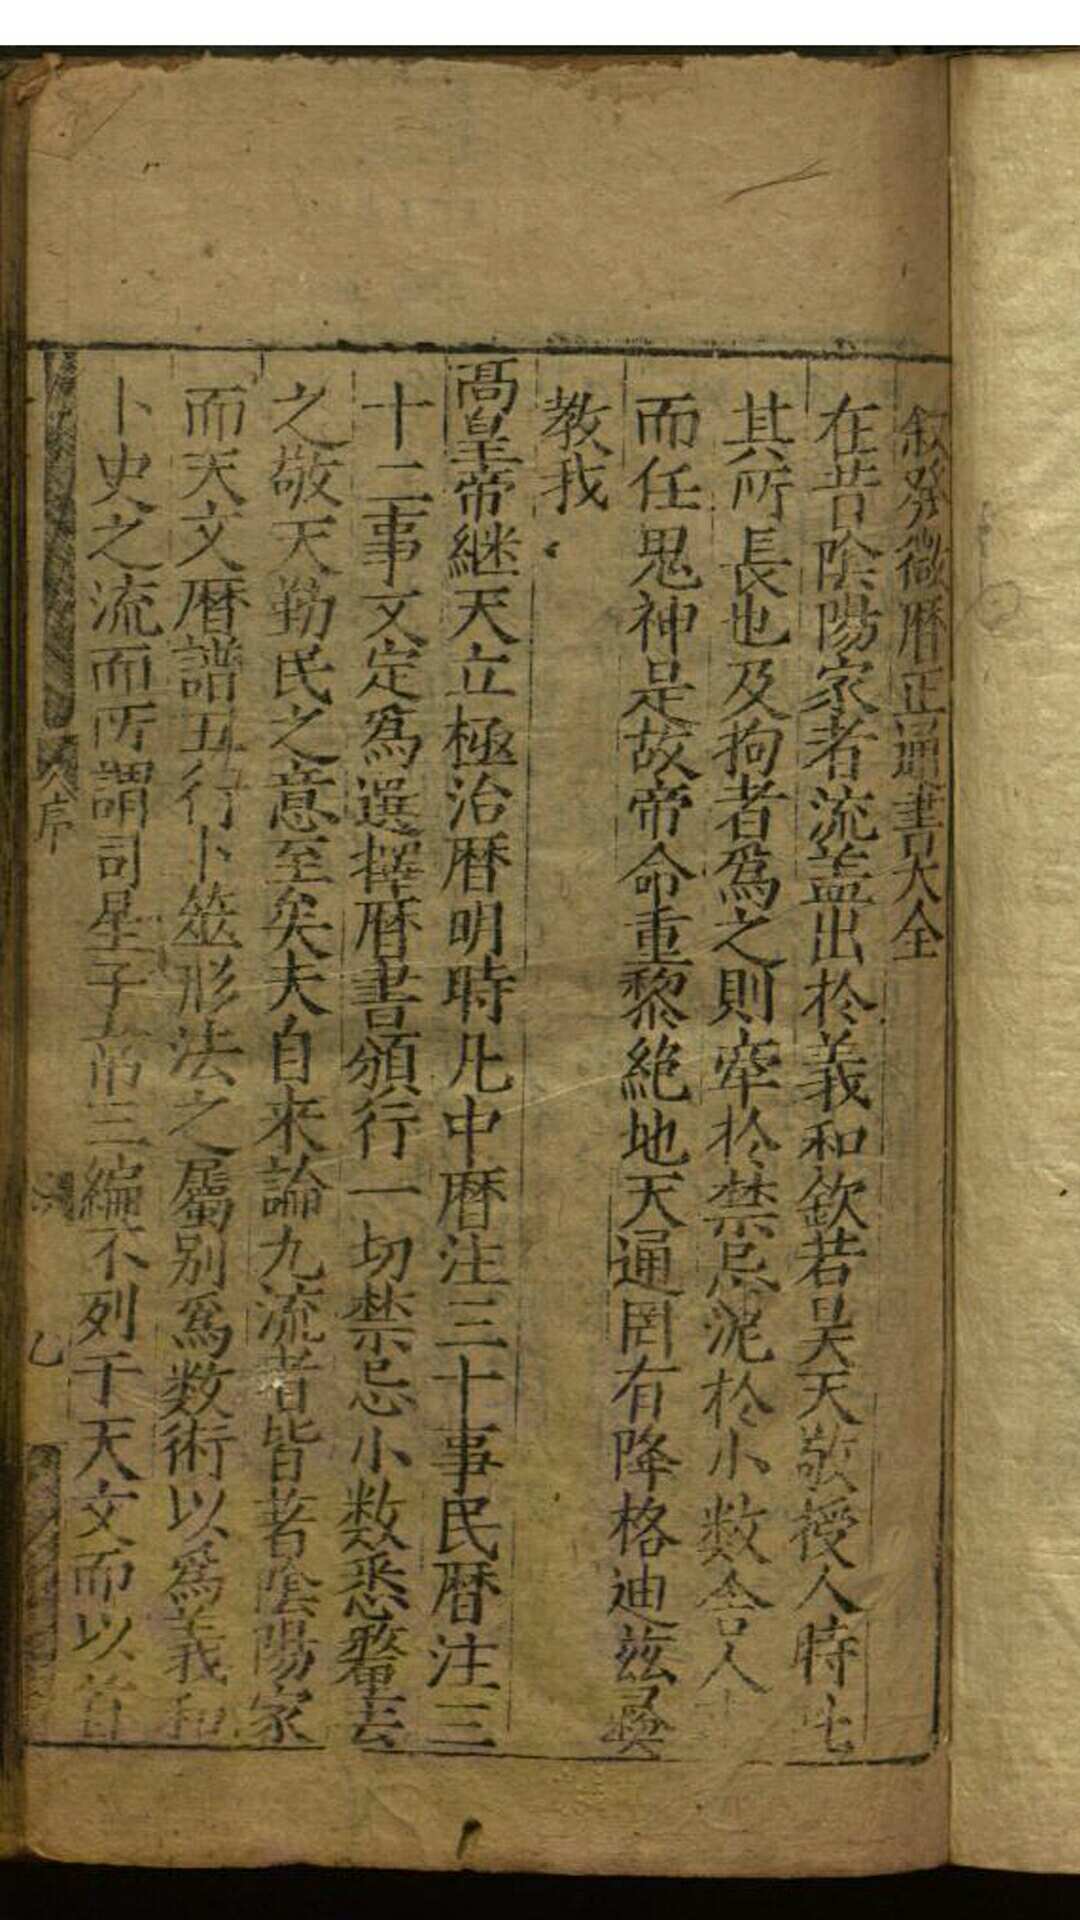 敘發微曆正通書大全
在昔陰陽家者流盖出於羲和欽若昊天敬授人時屯
其所長也及拘者爲之則牽於禁忌泥於小数舍人
而任鬼神是故帝命重黎絶地天通罔有降格迪兹彛
教我
髙皇帝継天立極治暦明時凡中暦注三十事民暦注三
十二事文定爲選擇暦書頒行一切禁忌小数悉釐去
之敬天勤民之意至矣夫自来論九流者皆著陰陽家
而天文暦譜五行卜筮形法之屬别爲数術以爲羲和
卜史之流而所謂司星子韋三編不列于天文而以
序
乙